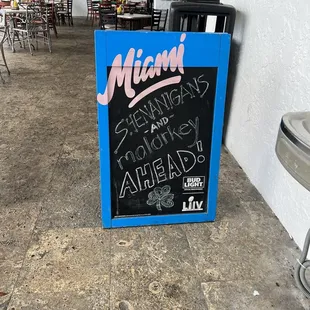 Miami
SHENANIGANS
-AND-
malarkey
AHEAD!
BUD
LIGHT
LIV